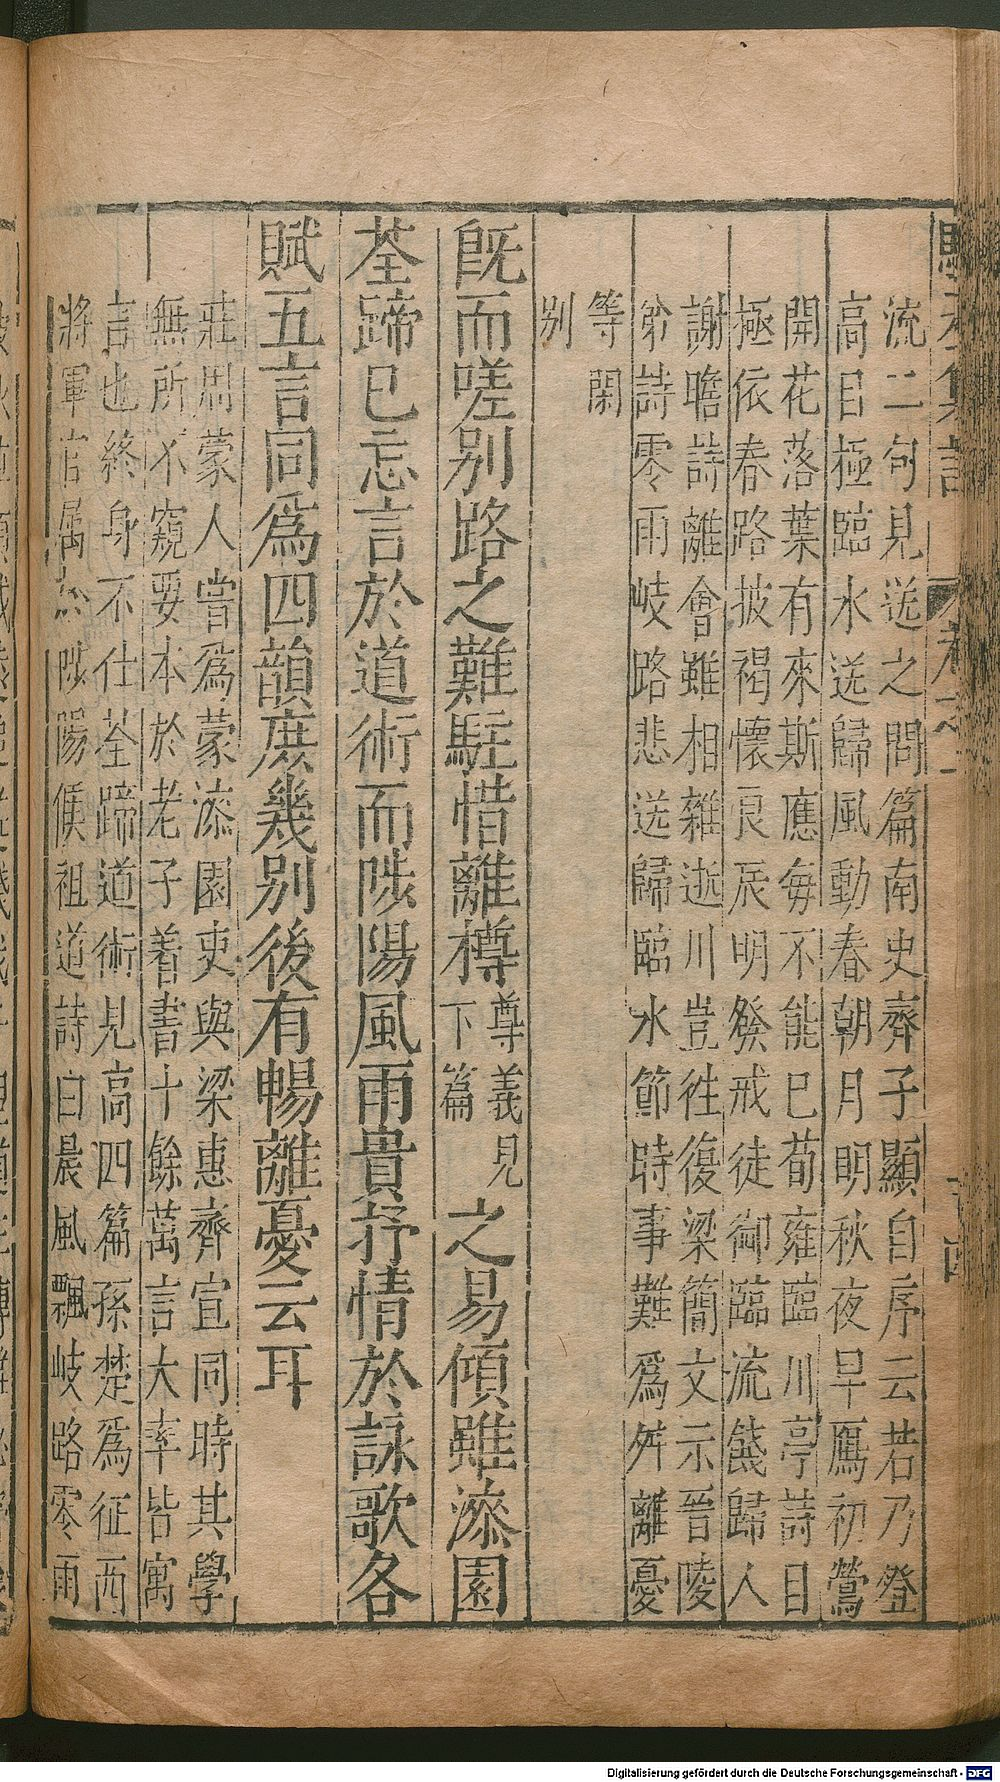 流二句見送之問篇南史齊子顯自序云若乃登
高目極臨水送歸風動春朝月明秋夜早鴈初鶯
開花落葉有來斯應每不能已荀雍臨川亭詩目
極依春路披褐懷良辰明發戒徒御臨流餞歸人
謝瞻詩離會雖相雜逝川豈徃復梁簡文示晉陵
弟詩零雨岐路悲送歸臨水節時事難爲舛離憂
等閑
别
旣而嗟别路之難駐惜離樽
尊義見
下篇
之易傾雖漆園
荃蹄已忘言於道術而陟陽風雨貴抒情於詠歌各
賦五言同爲四韻庶幾别後有暢離憂云耳
莊周蒙人嘗爲蒙漆園吏與梁惠齊宣同時其學
無所不窺要本於老子著書十餘萬言大率皆寓
言也終身不仕荃蹄道術見高四篇孫楚爲征西
將軍官属於陟陽候祖道詩曰晨風飄岐路零雨
Digitalisierung gefördert durch die Deutsche Forschungsgemeinschaft - DFG